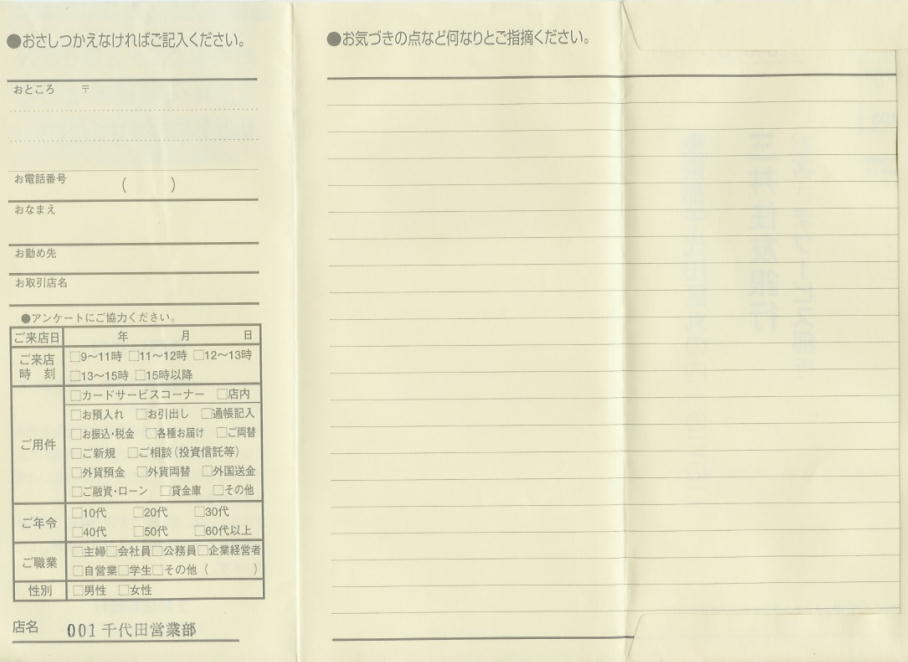 ●おさしつかえなければご記入ください。
おところ 〒
お電話番号 ( )
おなまえ
お勤め先
お取引店名
●アンケートにご協力ください。
ご来店日 年 月 日
ご来店時刻 □9〜11時 □11〜12時 □12〜13時
□13〜15時 □15時以降
ご用件 □カードサービスコーナー □店内
□お預入れ □お引出し □通帳記入
□お振込・税金 □各種お届け □ご両替
□ご新規 □ご相談(投資信託等)
□外貨預金 □外貨両替 □外国送金
□ご融資・ローン □貸金庫 □その他
ご年令 □10代 □20代 □30代
□40代 □50代 □60代以上
ご職業 □主婦□会社員□公務員□企業経営者
□自営業□学生□その他( )
性別 □男性 □女性
店名 001千代田営業部
●お気づきの点など何なりとご指摘ください。